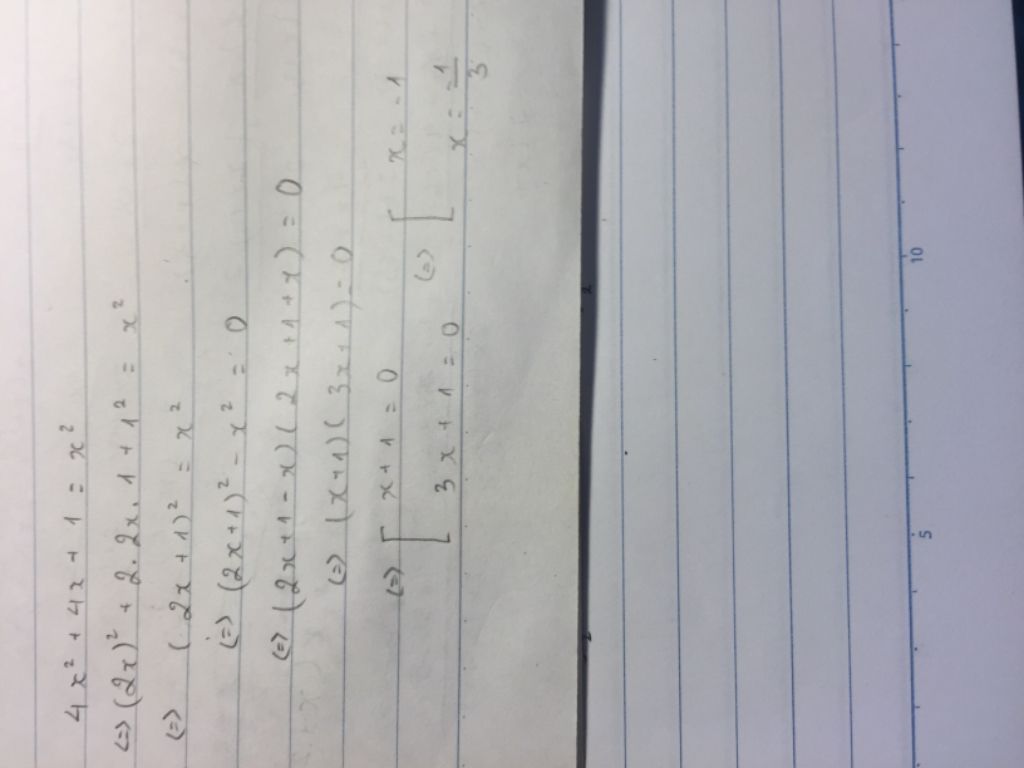 4x² + 4x + 1 = x²
(=) (2x)² + 2.2x.1 + 1² = x²
(=) (2x + 1)² = x²
(=) (2x+1)² - x² = 0
(=) (2x+1-x)(2x+1+x) = 0
(=) (x+1)(3x+1) = 0
(=) [ x+1 = 0 (=) [ x = -1
3x + 1 = 0 x = -1/3
5 10